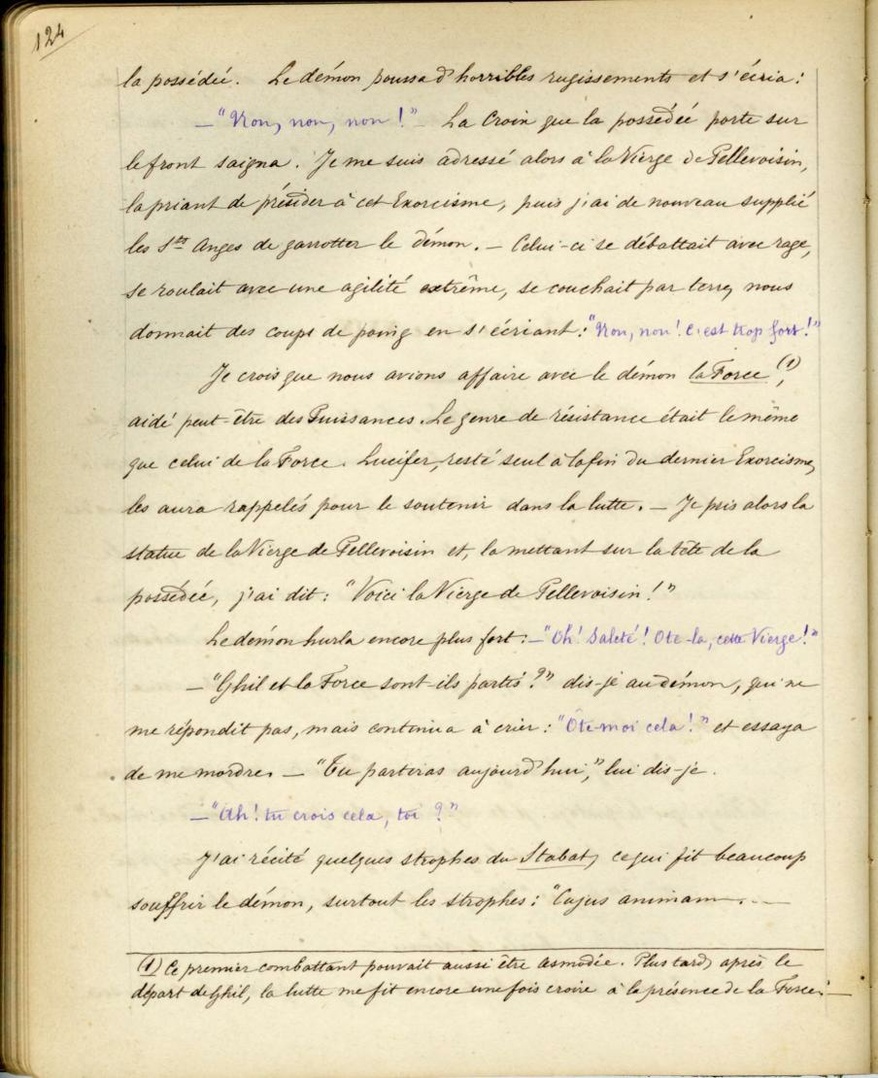 124
la possédée. Le démon poussa d'horribles rugissements et s'écria:
—"Non, non, non!"— La Croix que la possédée porte sur
le front saigna. Je me suis adressé alors à la Vierge de Pellevoisin,
la priant de présider à cet Exorcisme, puis j'ai de nouveau supplié
les Sts Anges de garrotter le démon. — Celui-ci se débattait avec rage,
se roulait avec une agilité extrême, se couchait par terre, nous
donnait des coups de poing en s'écriant: "Non, non! C'est trop fort!"
Je crois que nous avions affaire avec le démon la Force (1),
aidé peut-être des Puissances. Le genre de résistance était le même
que celui de la Force. Lucifer, resté seul à la fin du dernier Exorcisme,
les aura rappelés pour le soutenir dans la lutte. — Je pris alors la
statue de la Vierge de Pellevoisin et, la mettant sur la tête de la
possédée, j'ai dit: "Voici la Vierge de Pellevoisin!"
Le démon hurla encore plus fort: —"Oh! Saleté! Ote-la, cette Vierge!"
—"Ghil et la Force sont-ils partis?" dis-je au démon, qui ne
me répondit pas, mais continua à crier: "Ote-moi cela!" et essaya
de me mordre. — "Tu partiras aujourd'hui," lui dis-je.
—"Ah! tu crois cela, toi?"
J'ai récité quelques strophes du Stabat, ce qui fit beaucoup
souffrir le démon, surtout les strophes: "Cujus animam . . —
(1) Ce premier combattant pouvait aussi être Asmodée. Plus tard, après le
départ de Ghil, la lutte me fit encore une fois croire à la présence de la Force. —